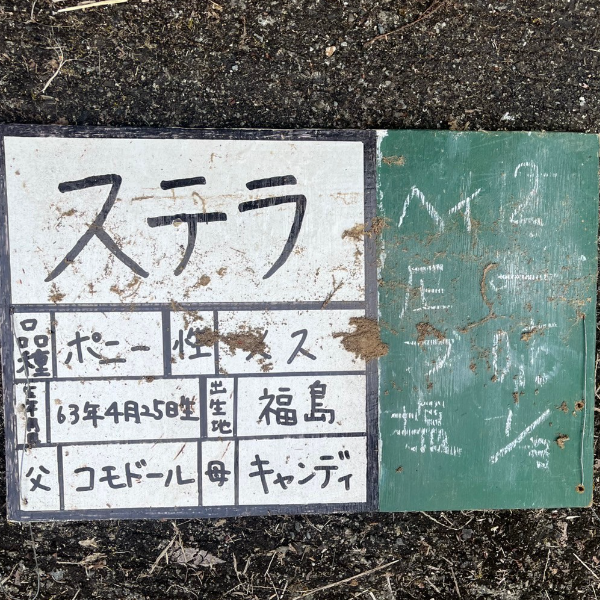 ステラ
品種 ポニー 性 メス
生年月日 63年4月25日生 出生地 福島
父 コモドール 母 キャンディ
ヘイ 2